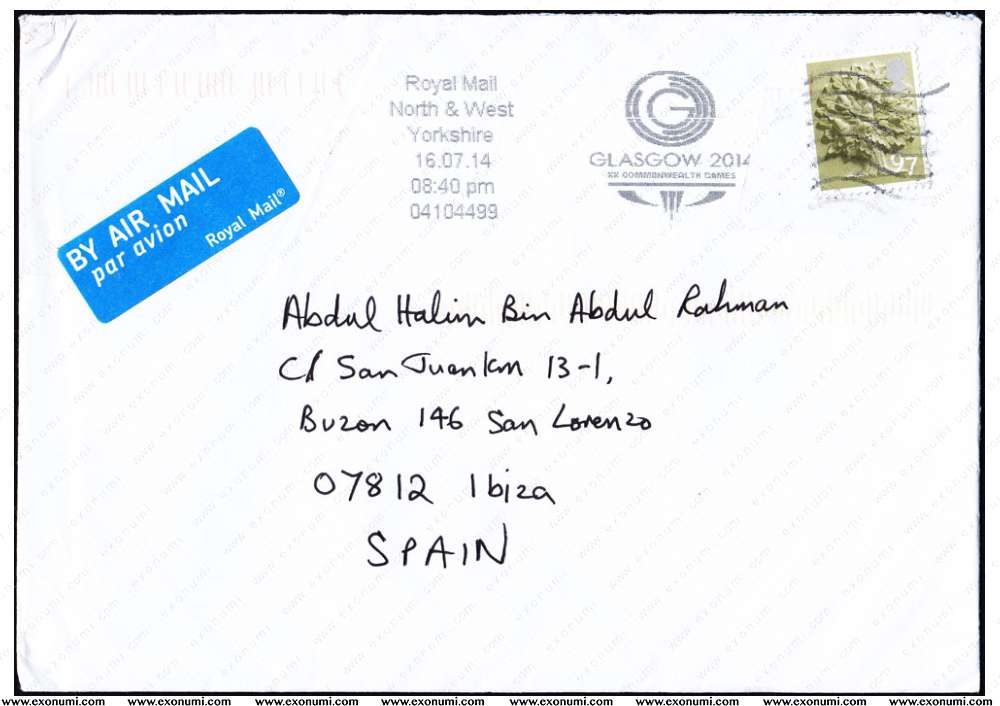 Royal Mail
North & West
Yorkshire
16.07.14
08:40 pm
04104499
GLASGOW 2014
XX COMMONWEALTH GAMES
97
BY AIR MAIL
par avion
Royal Mail®
Abdul Halim Bin Abdul Rahman
C/ San Juan km 13-1,
Buzon 146 San Lorenzo
07812 Ibiza
SPAIN
www.exonumi.com www.exonumi.com www.exonumi.com www.exonumi.com www.exonumi.com www.exonumi.com www.exonumi.com www.exonumi.com